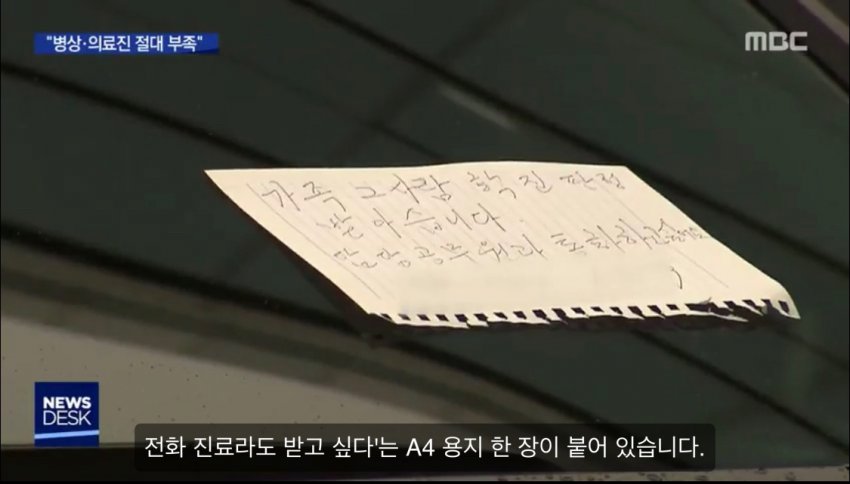 "병상·의료진 절대 부족"
MBC
가족 그사람 확진 판정
받아습니다.
담당공무원과 통화하고싶어요
NEWS
DESK
전화 진료라도 받고 싶다'는 A4 용지 한 장이 붙어 있습니다.